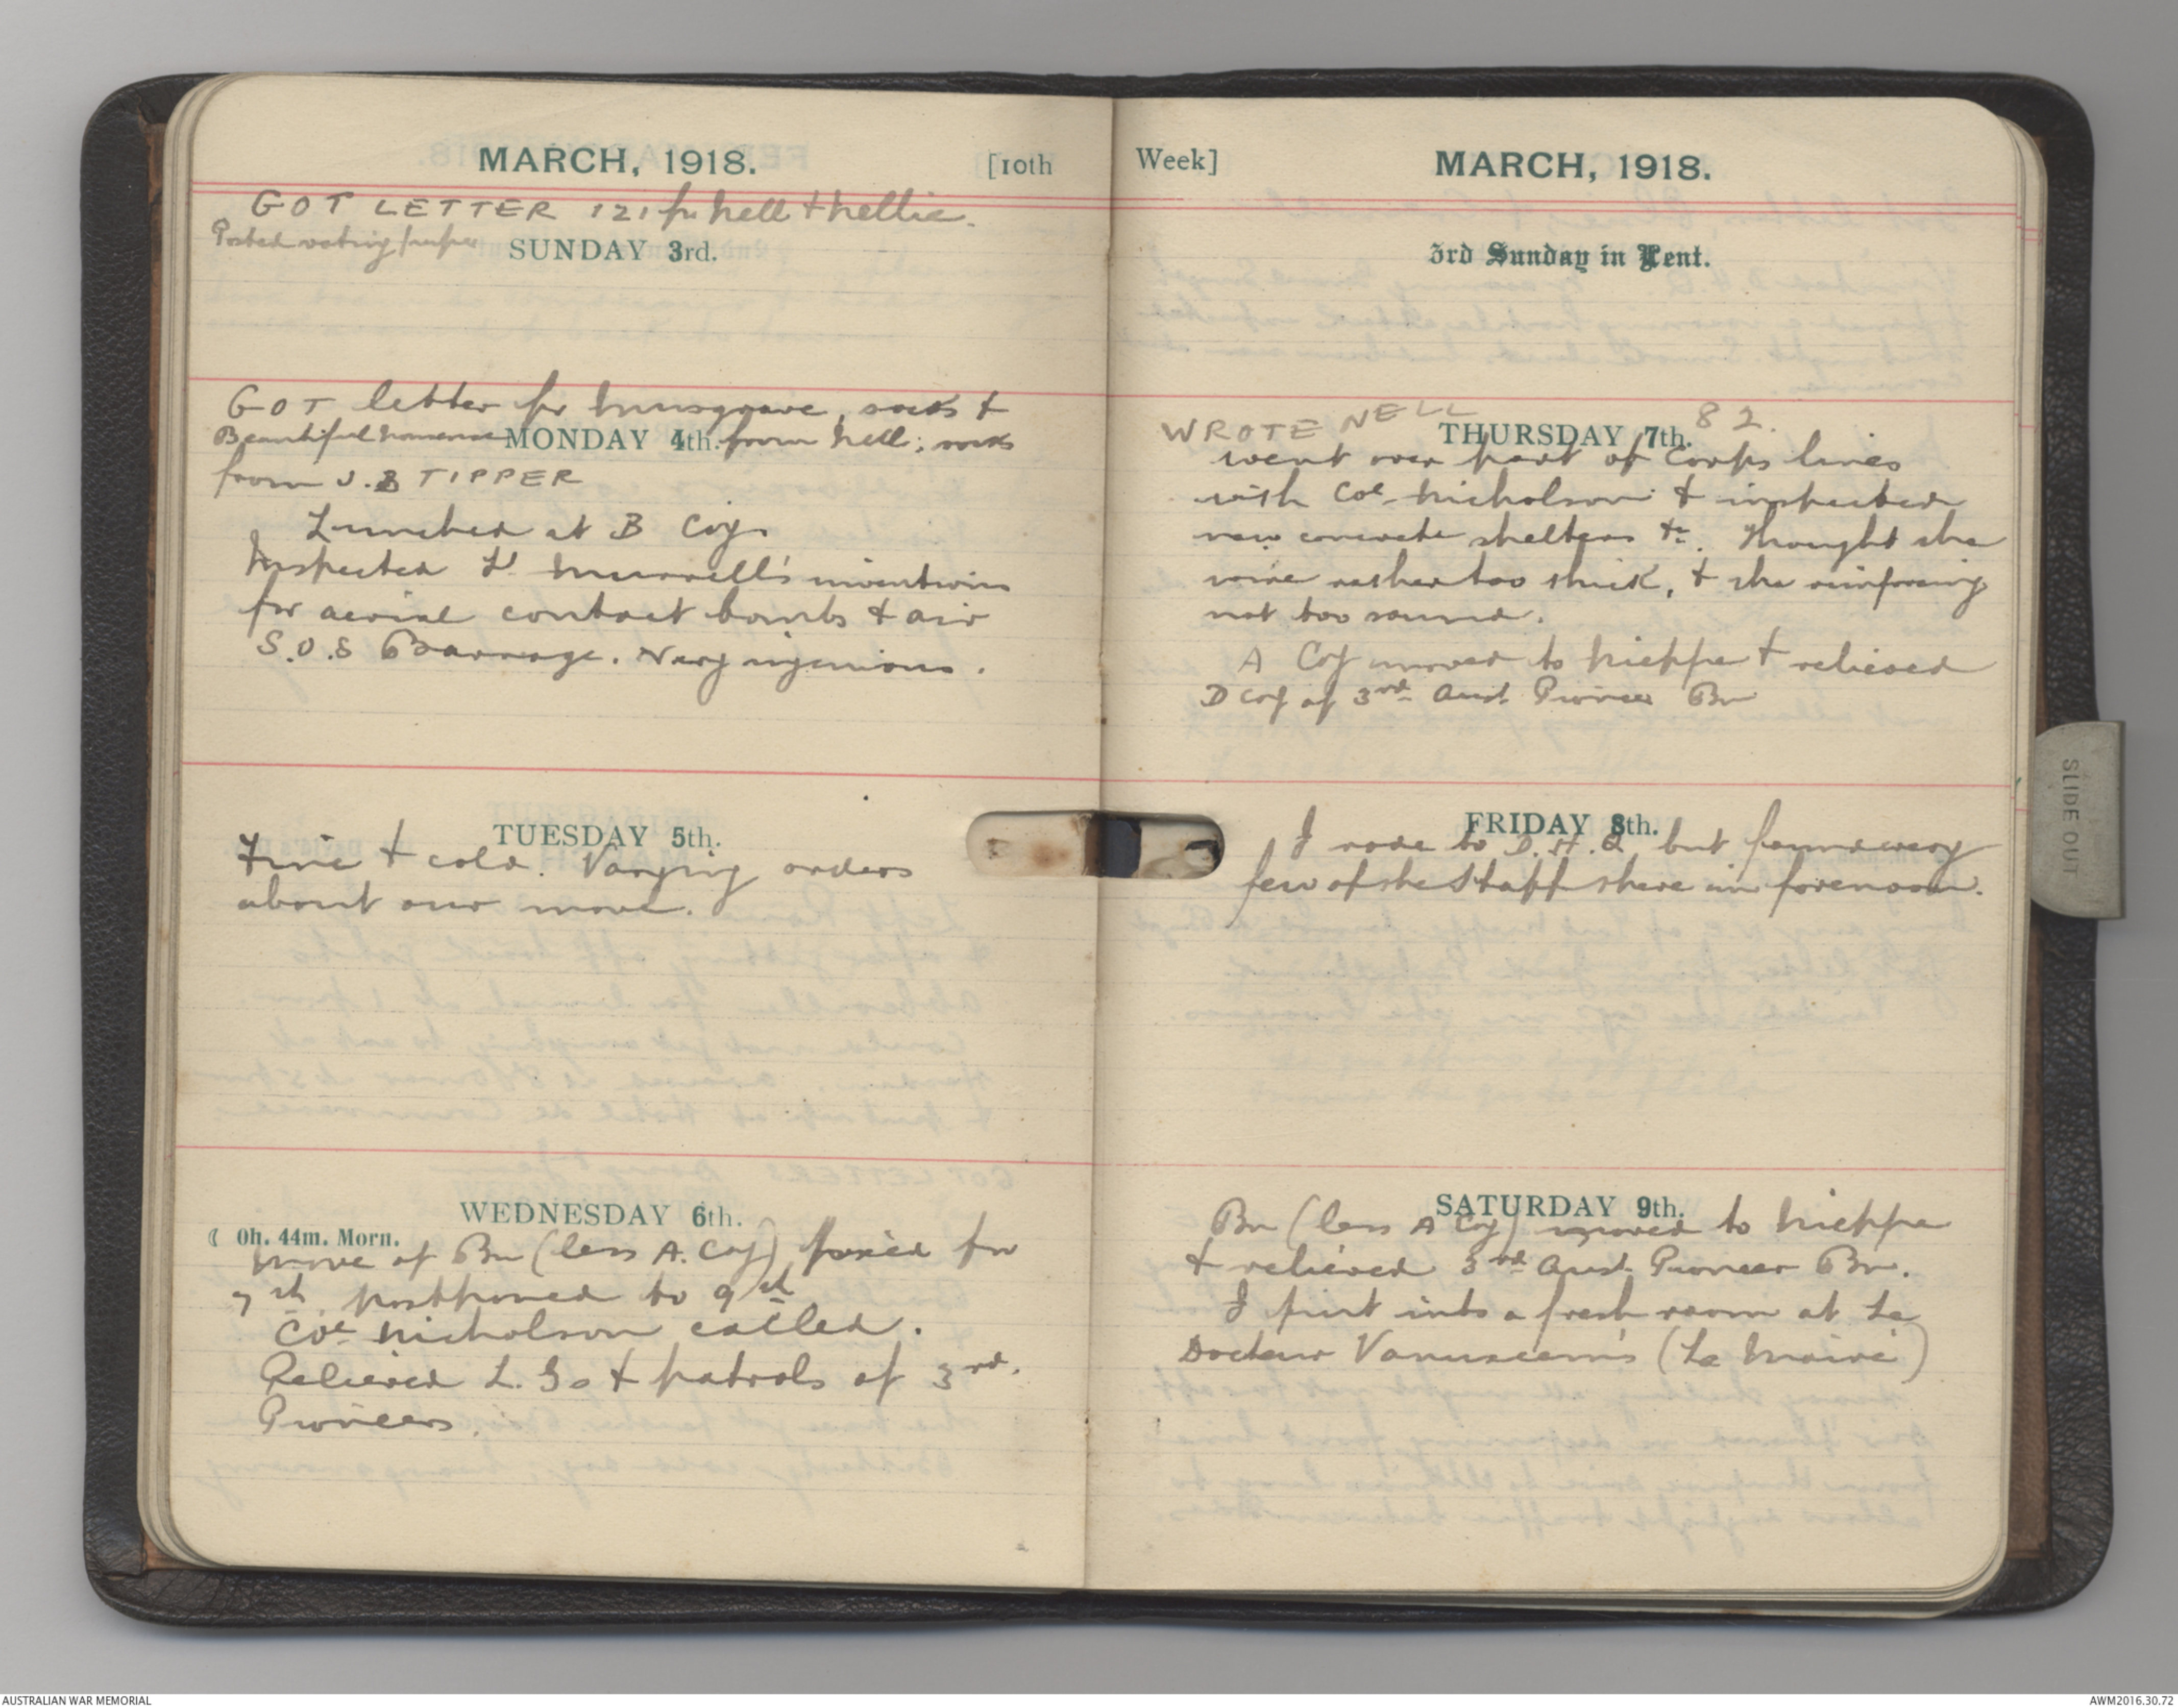 MARCH, 1918. [10th
GOT LETTER 121 fr Nell & Nellie.
Posted voting paper
SUNDAY 3rd.
GOT letter fr Musgrave, socks &
Beautiful MONDAY 4th. from Nell; socks
from J.B TIPPER
Lunched at B Coy.
Inspected Lt Murrell's inventions
for aerial contact bombs & air
S.O.S Barrage. Very ingenious.
TUESDAY 5th.
Fine & cold. Varying orders
about our move.
WEDNESDAY 6th.
☾ 0h. 44m. Morn.
Move of Bn (less A. Coy) fixed for
7th postponed to 9th
Col Nicholson called.
Relieved L.Gs & patrols of 3rd.
Pioneers.
Week] MARCH, 1918.
3rd Sunday in Lent.
WROTE NELL 82.
THURSDAY 7th.
Went over part of Corps lines
with Col Nicholson & inspected
new concrete shelters &c. Thought the
wire rather too thick, & the reinforcing
not too sound.
A Coy moved to Nieppe & relieved
D Coy of 3rd Aust. Pioneer Bn
FRIDAY 8th.
I rode to D.H.Q but found very
few of the Staff there in forenoon.
SATURDAY 9th.
Bn (less A Coy) moved to Nieppe
& relieved 3rd Aust. Pioneer Bn.
I put into a fresh room at Le
Docteur (Le Maire)
SLIDE OUT
AUSTRALIAN WAR MEMORIAL
AWM2016.30.72